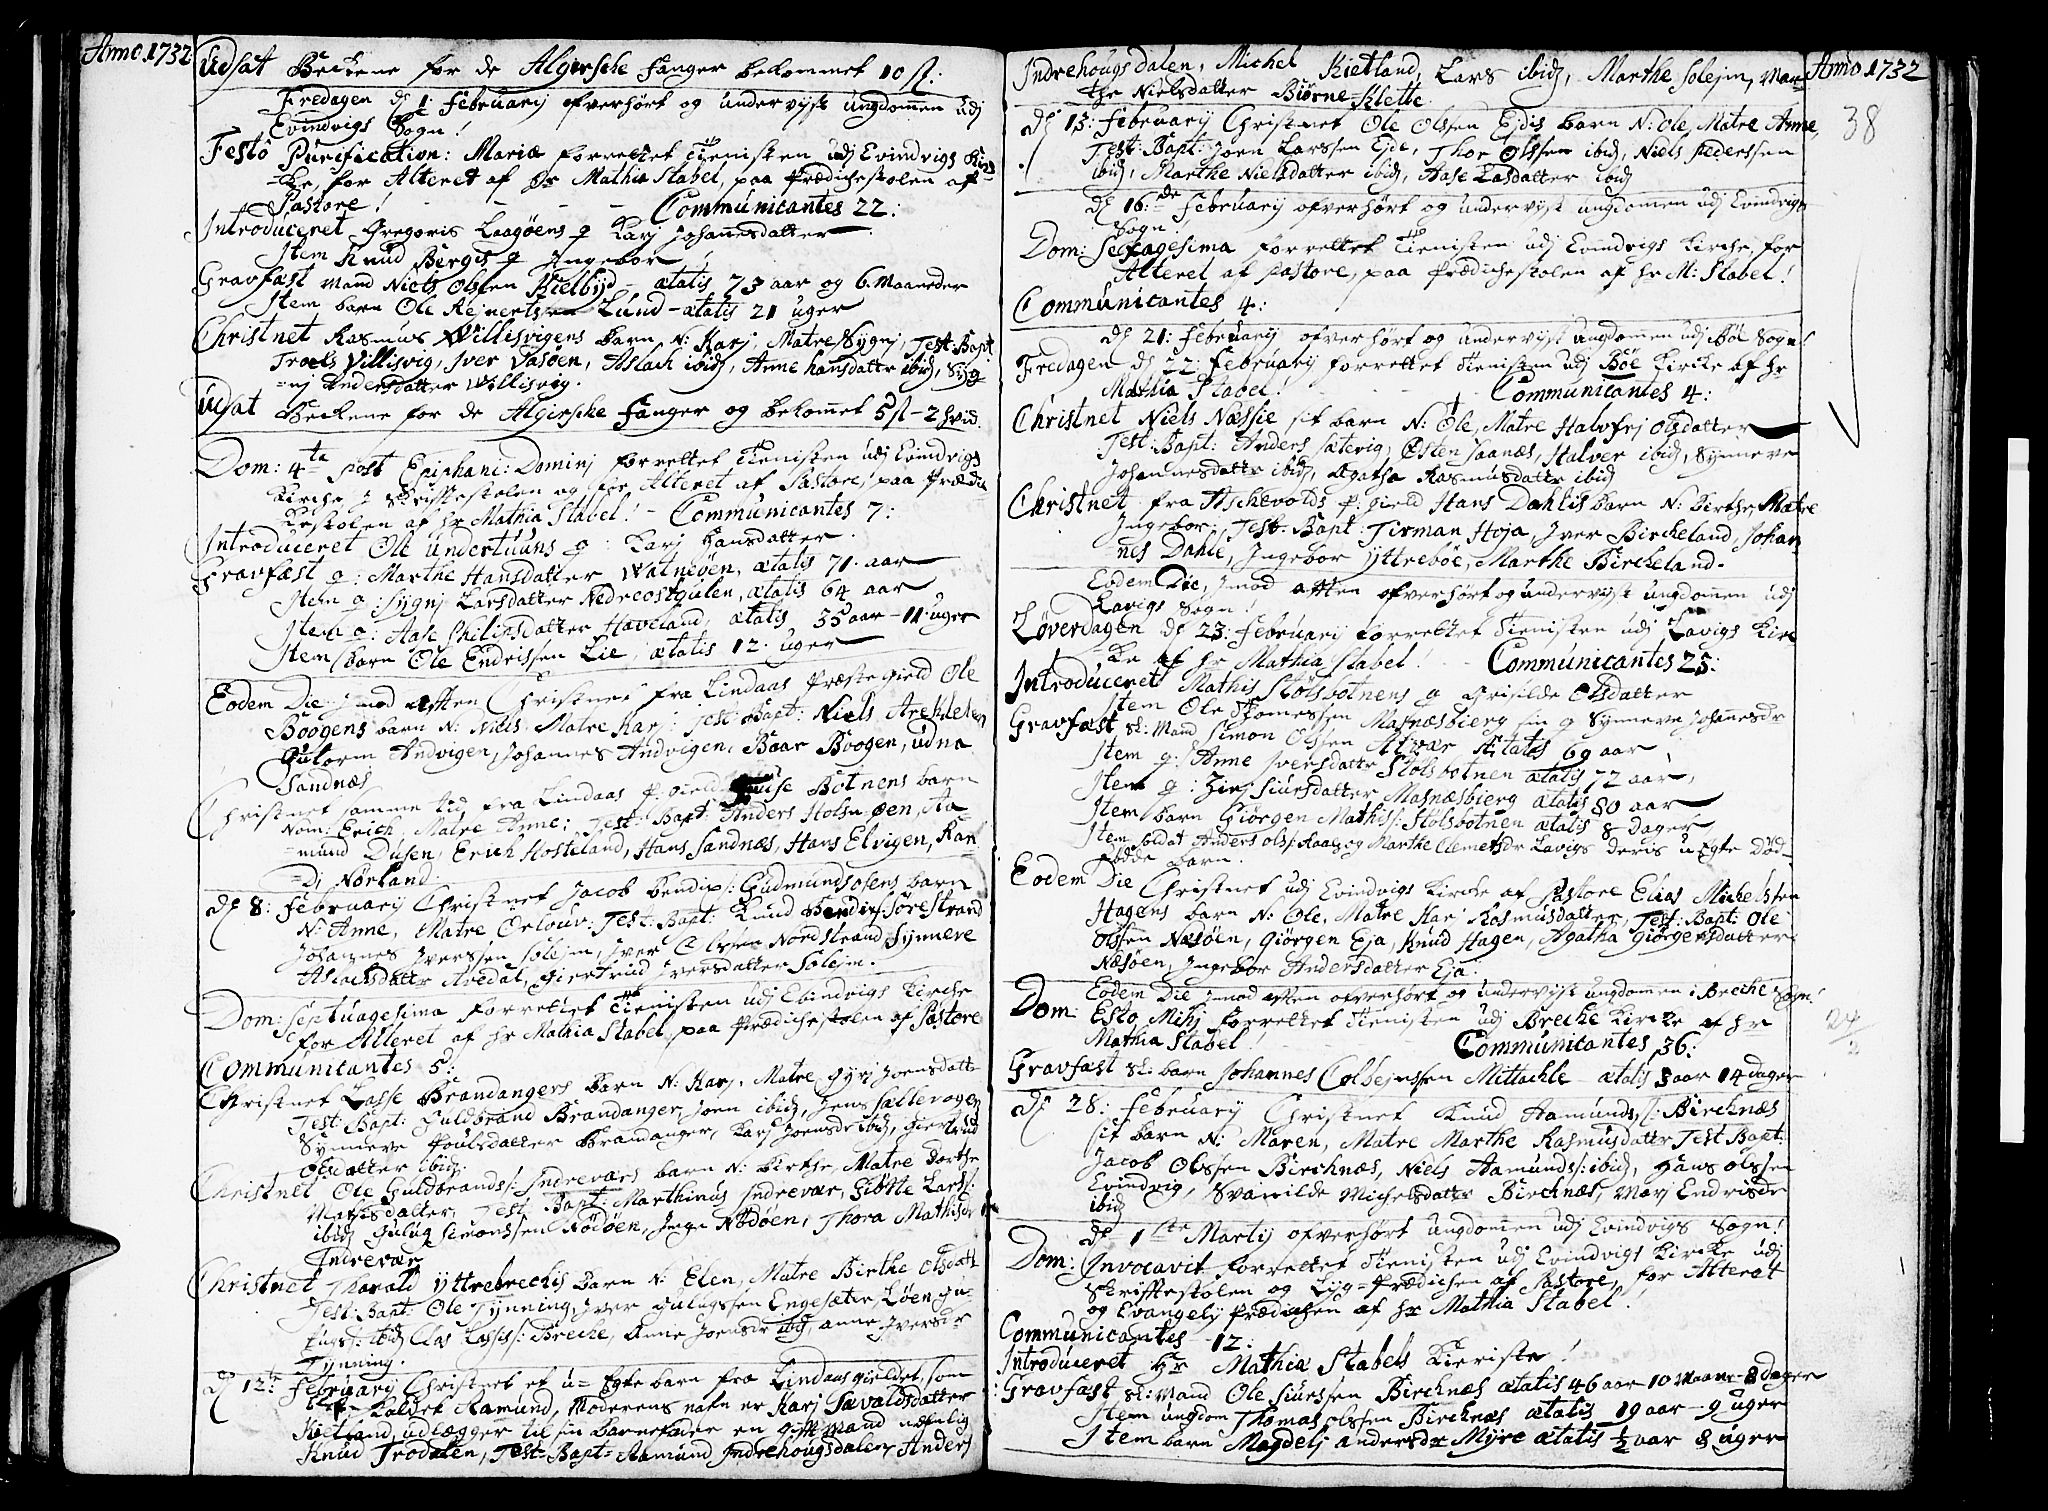 Anno. 1732
Udsat Beckene for de Algirske Fanger bekommet 10 sl.
Fredagen d 1 February ofverhørt og undervijst ungdomen udj
Evindvigs Sogn!
Festo Purification: Mariæ forrettet Tienisten udj Evindvigs Kir=
=ke, for Alteret af Hr Mathia Stabel, paa Prædichestolen af
Pastore! - - - - Communicantes 22:
Introduceret Gregoris Laagøens q Karj Johannesdatter
Item Knud Bergis q Ingebor
Gravfæst Mand Niels Olssen Kielbyd - ætatis 73 aar og 6. Maaneder
Item barn Ole Rejnertssen Lund - ætatis 21 uger
Christnet Rasmus Willisvigens barn N: Karj, Matre Sygnj, Test: Bapt
Troels Villisvig, Iver Vasøen, Aslach ibid, Anne hansdatter ibid, Syg
=nj Andersdatter Willisvig.
Udsat Beckene for de Algirske Fanger og bekomet 5 sl - 2 hvid.
Dom: 4ta post Epiphani: Dominj forrettet Tienisten udj Evindvigs
Kirche J Skriftestolen og for Alteret af Pastore, paa Prædi
kestolen af hr Mathia Stabel! - Communicantes 7:
Introduceret Ole Undertuuns q: Karj Hansdatter.
Gravfæst q: Marthe Hansdatter Watnøen, ætatis 71. aar
Item q: Sygnj Larsdatter Nedreostgulen, ætatis 64 aar
Item q: Aase Philipsdatter Haveland, ætatis 35 aar - 11. uger
Item barn Ole Endrissen Lie, ætatis 12. uger
Eodem Die imod aften Christnet fra Lindaas Præstegield Ole
Boogens barn N: Niels. Matre Karj: Test: Bapt: Niels Areklelen
Gutorm Andvigen, Johannes Andvigen, Baar Boogen, udna
Sandnæs
Christnet samme tid fra Lindaas P: gield Botnens barn
Nom: Erich, Matre Anne: Test: Bapt: Anders Holmøen, Aa=
=mund Dusen, Erich Hosteland, Hans Sandnæs, Hans Elvigen, Ran
=Dj Nørland.
d 8: February Christnet Jacob Bendix: Gudmundsosens barn
N: Anne, Matre Orlouv. Test: Bapt: Knud Bendix: Søre Strand
Johannes Iverssen Solejm, Iver Olssen Nordstrand, Synneve
Aslachsdatter Avedal, Giertrud Iversdatter Solejm.
Dom: Septuagesima forrettet Tienisten udj Evindvigs Kirche
for Alteret af hr Mathia Stabel, paa Prædichestolen af Pastore
Communicantes 5:
Christnet Lasse Brandangers barn N: Karj, Matre Gyrj Joensdatt
Test: Bapt: Guldbrand Brandanger, Joen ibid, Jens Sællevogen
Synneve Poulsdatter Brandanger, Karj Joensdr ibid, Giertrud
Olsdatter ibid.
Christnet Ole Guldbrands: Indreværs barn N: Birthe, Matre Dorthe
Mathisdatter, Test Bapt: Marthinus Indrevær, Giøtte Lars:
ibid Gulug Simonssen Nødøen, Inge Nødøen, Thora Mathisdr
Indrevær
Christnet Tharald Yttrebrechis barn N: Elen, Matre Birthe Olsdatt
Test: Bapt: Ole Tynning, Iver Gulugssen Engesæter, Løen Gu=
lugs: ibid, Clas Lasses: Breche, Anne Joensdr ibid, anne Iversdr
Tynning.
d 12te February Christnet et u=Egte barn fra Lindaasgieldet, som
kaldet Aamund, Moderens nafn er Karj Sævaldsdatter
Kietland, udlægger til sin barnefader en gift Mand næmlig
Knud Trodalen, Test: Bapt: Aamund Indrehougsdalen, Anders
Indrehougsdalen, Michel Kietland, Lars ibid, Marthe Solejm, Mar=
the Nielsdatter Biørne=Klette
Anno 1732
38
d 13: February Christnet Ole Olssen Ejdis barn N: Ole, Matre Anne,
Test: Bapt: Joen Larssen Ejde, Thor Olssen ibid, Niels Pederssen
ibid, Marthe Nielsdatter ibid, Aase Lasdatter ibid
d 16:de February ofverhørt og undervijst ungdomen udj Evindvigs
Sogn!
Dom: Sexagesima forrettet Tienisten udj Evindvigs Kirche, for
Alteret af Pastore, paa Prædichestolen af hr M: Stabel!
Communicantes 4:
d 21: February ofverhørt og undervijst ungdomen udj Bøe Sogn!
Fredagen d 22: February forrettet Tienisten udj Bøe Kircke af hr
Mathia Stabel! - - - Communicantes 4:
Christnet Niels Næssie sit barn N: Ole, Matre Halvfrj Olsdatter
Test: Bapt: Anders Sætevig, Østen Saanæs, Halver ibid, Synneve
Johannesdatter ibid, Agatha Rasmusdatter ibid
Christnet fra Aschevolds P: gield Hans Dahlis barn N: Birthe, Matre
Ingebor: Test: Bapt: Tirman Hoja, Iver Bircheland, Johan
nes Dahle, Ingebor Yttrebøe, Marthe Bircheland.
Eodem Die, imod aften ofverhørt og undervijst ungdomen udj
Lavigs Sogn!
Løverdagen d 23: February forrettet Tienisten udj Lavigs Kirc
ke af hr Mathia Stabel! - - Communicantes 25:
Introduceret Mathis Stølsbotnens q Grisilde Olsdatter
Item Ole Thomessen Masnæsbierg sin q Synneve Johanesdr
Gravfæst Sl: Mand Simon Olssen Alvær Ætatis 69 aar
Item q: Anne Iversdatter Stølsbotnen ætatis 72 aar,
Item q: Zirj Siursdatter Masnæsbierg ætatis 80 aar
Item barn Giørgen Mathis: Stølsbotnen ætatis 8 dager
Item Soldat Anders Ols: Raas og Marthe Clemetsdr Lavigs deris uEgte Død=
fødde barn.
Eodem Die Christnet udj Evindvigs Kircke af Pastore Elias Michelssen
Hagens barn N: Ole, Matre Karj Rasmusdatter, Test: Bapt: Ole
Olssen Næsøen, Giørgen Eja, Knud Hagen, Agatha Giørgensdatter
Næsøen, Ingebor Andersdatter Eja.
Eodem Die imod aften ofverhørt og undervijst ungdomen i Breche Sogn!
Dom: Esto Mihj forrettet Tienisten udj Breche Kircke af hr
Mathia Stabel! - - Communicantes 36:
24/2
Gravfæst Sl: barn Johannes Colbejnssen Mittachle - ætatis 3 aar 14 dager
d 28: February Christnet Knud Aamunds: Birchnæs
sit barn N: Maren, Matre Marthe Rasmusdatter Test Bapt:
Jacob Olssen Birchnæs, Niels Aamunds: ibid, Hans Olssen
Evindvig, Svanilde Michelsdatter Birchnæs, Marj Endrisdr
ibid
d 1ste Martij ofverhørt ungdomen udj Evindvigs Sogn!
Dom: Invocavit forrettet Tienisten udj Evindvigs Kircke udj
Skriftestolen og Lyg=Prædichen af Pastore, for Alteret
og Evangelij Prædichen af hr Mathia Stabel!
Communicantes - 12:
Introduceret Hr Mathia Stabels Kieriste!
Gravfæst Sl: Mand Ole Siurssen Birchnæs ætatis 46 aar 10 Maane 8 dager
Item ungdom Thomas Olssen Birchnæs ætatis 19 aar - 9 uger
Item barn Magdelj Andersdr Myre ætatis ½ aar 8 uger